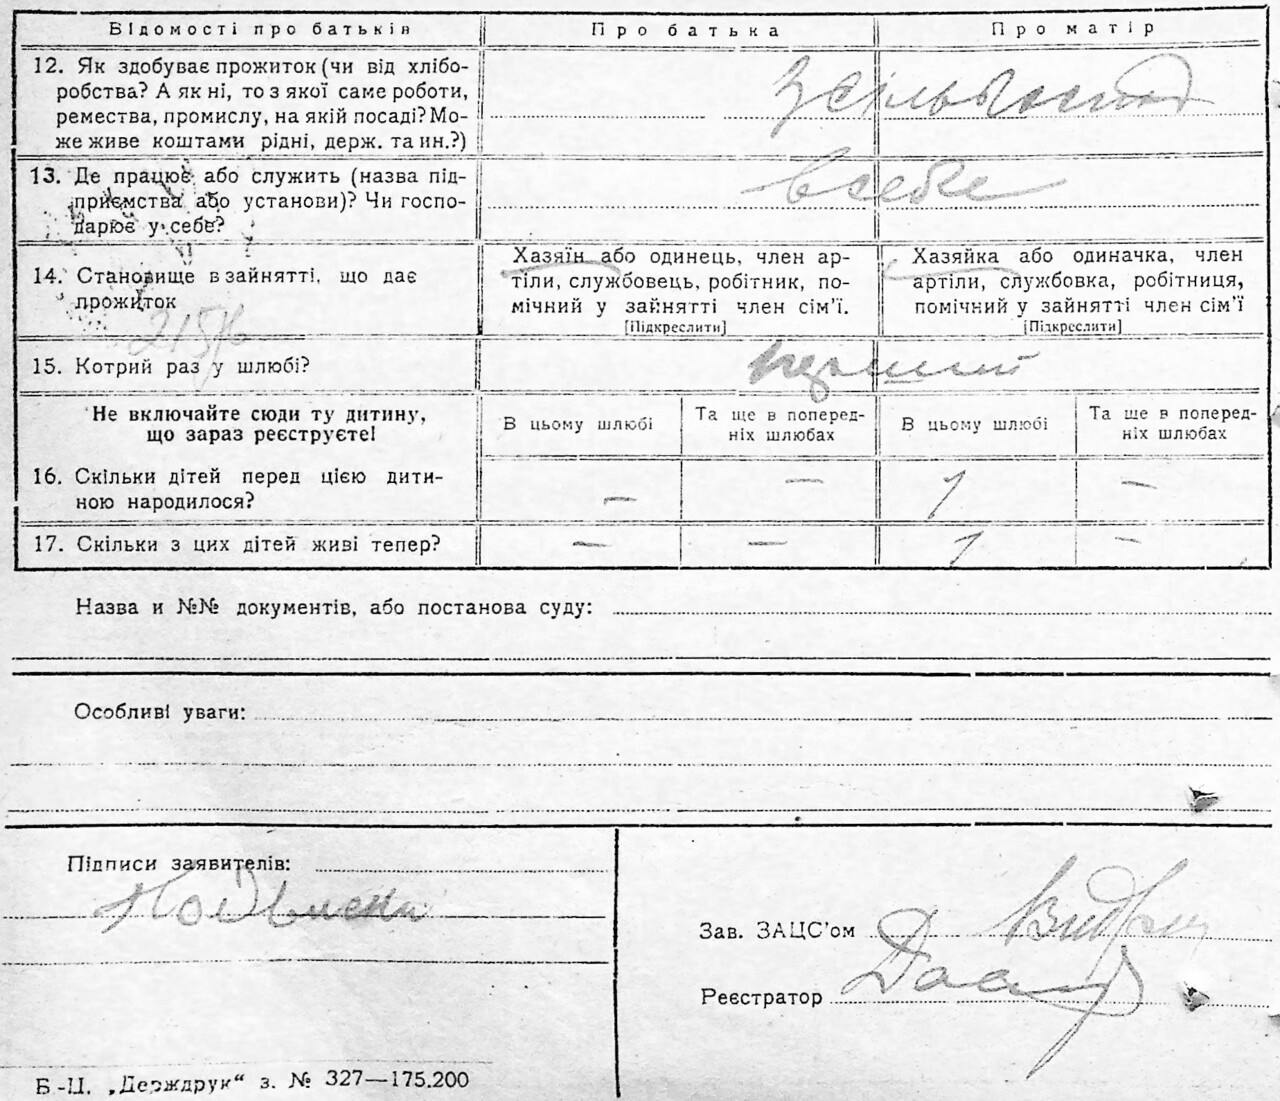 Відомості про батьків Про батька Про матір
12. Як здобуває прожиток (чи від хлібо-
робства? А як ні, то з якої саме роботи,
ремества, промислу, на якій посаді? Мо-
же живе коштами рідні, держ. та ин.?)
З сільгоспод
13. Де працює або служить (назва під-
приємства або установи)? Чи госпо-
дарює у себе?
в себе
14. Становище в зайнятті, що дає
прожиток
Хазяїн або одинець, член ар-
тіли, службовець, робітник, по-
мічний у зайнятті член сім'ї.
[Підкреслити]
Хазяйка або одиначка, член
артіли, службовка, робітниця,
помічний у зайнятті член сім'ї
[Підкреслити]
15. Котрий раз у шлюбі? перший
Не включайте сюди ту дитину,
що зараз реєструєте!
В цьому шлюбі
Та ще в поперед-
ніх шлюбах
В цьому шлюбі
Та ще в поперед-
ніх шлюбах
16. Скільки дітей перед цією дити-
ною народилося?
— — 1 —
17. Скільки з цих дітей живі тепер? — — 1 —
Назва и №№ документів, або постанова суду:
Особливі уваги:
Підписи заявителів:
Зав. ЗАЦС'ом
Реєстратор
Б-Ц. „Держдрук“ з. № 327—175.200